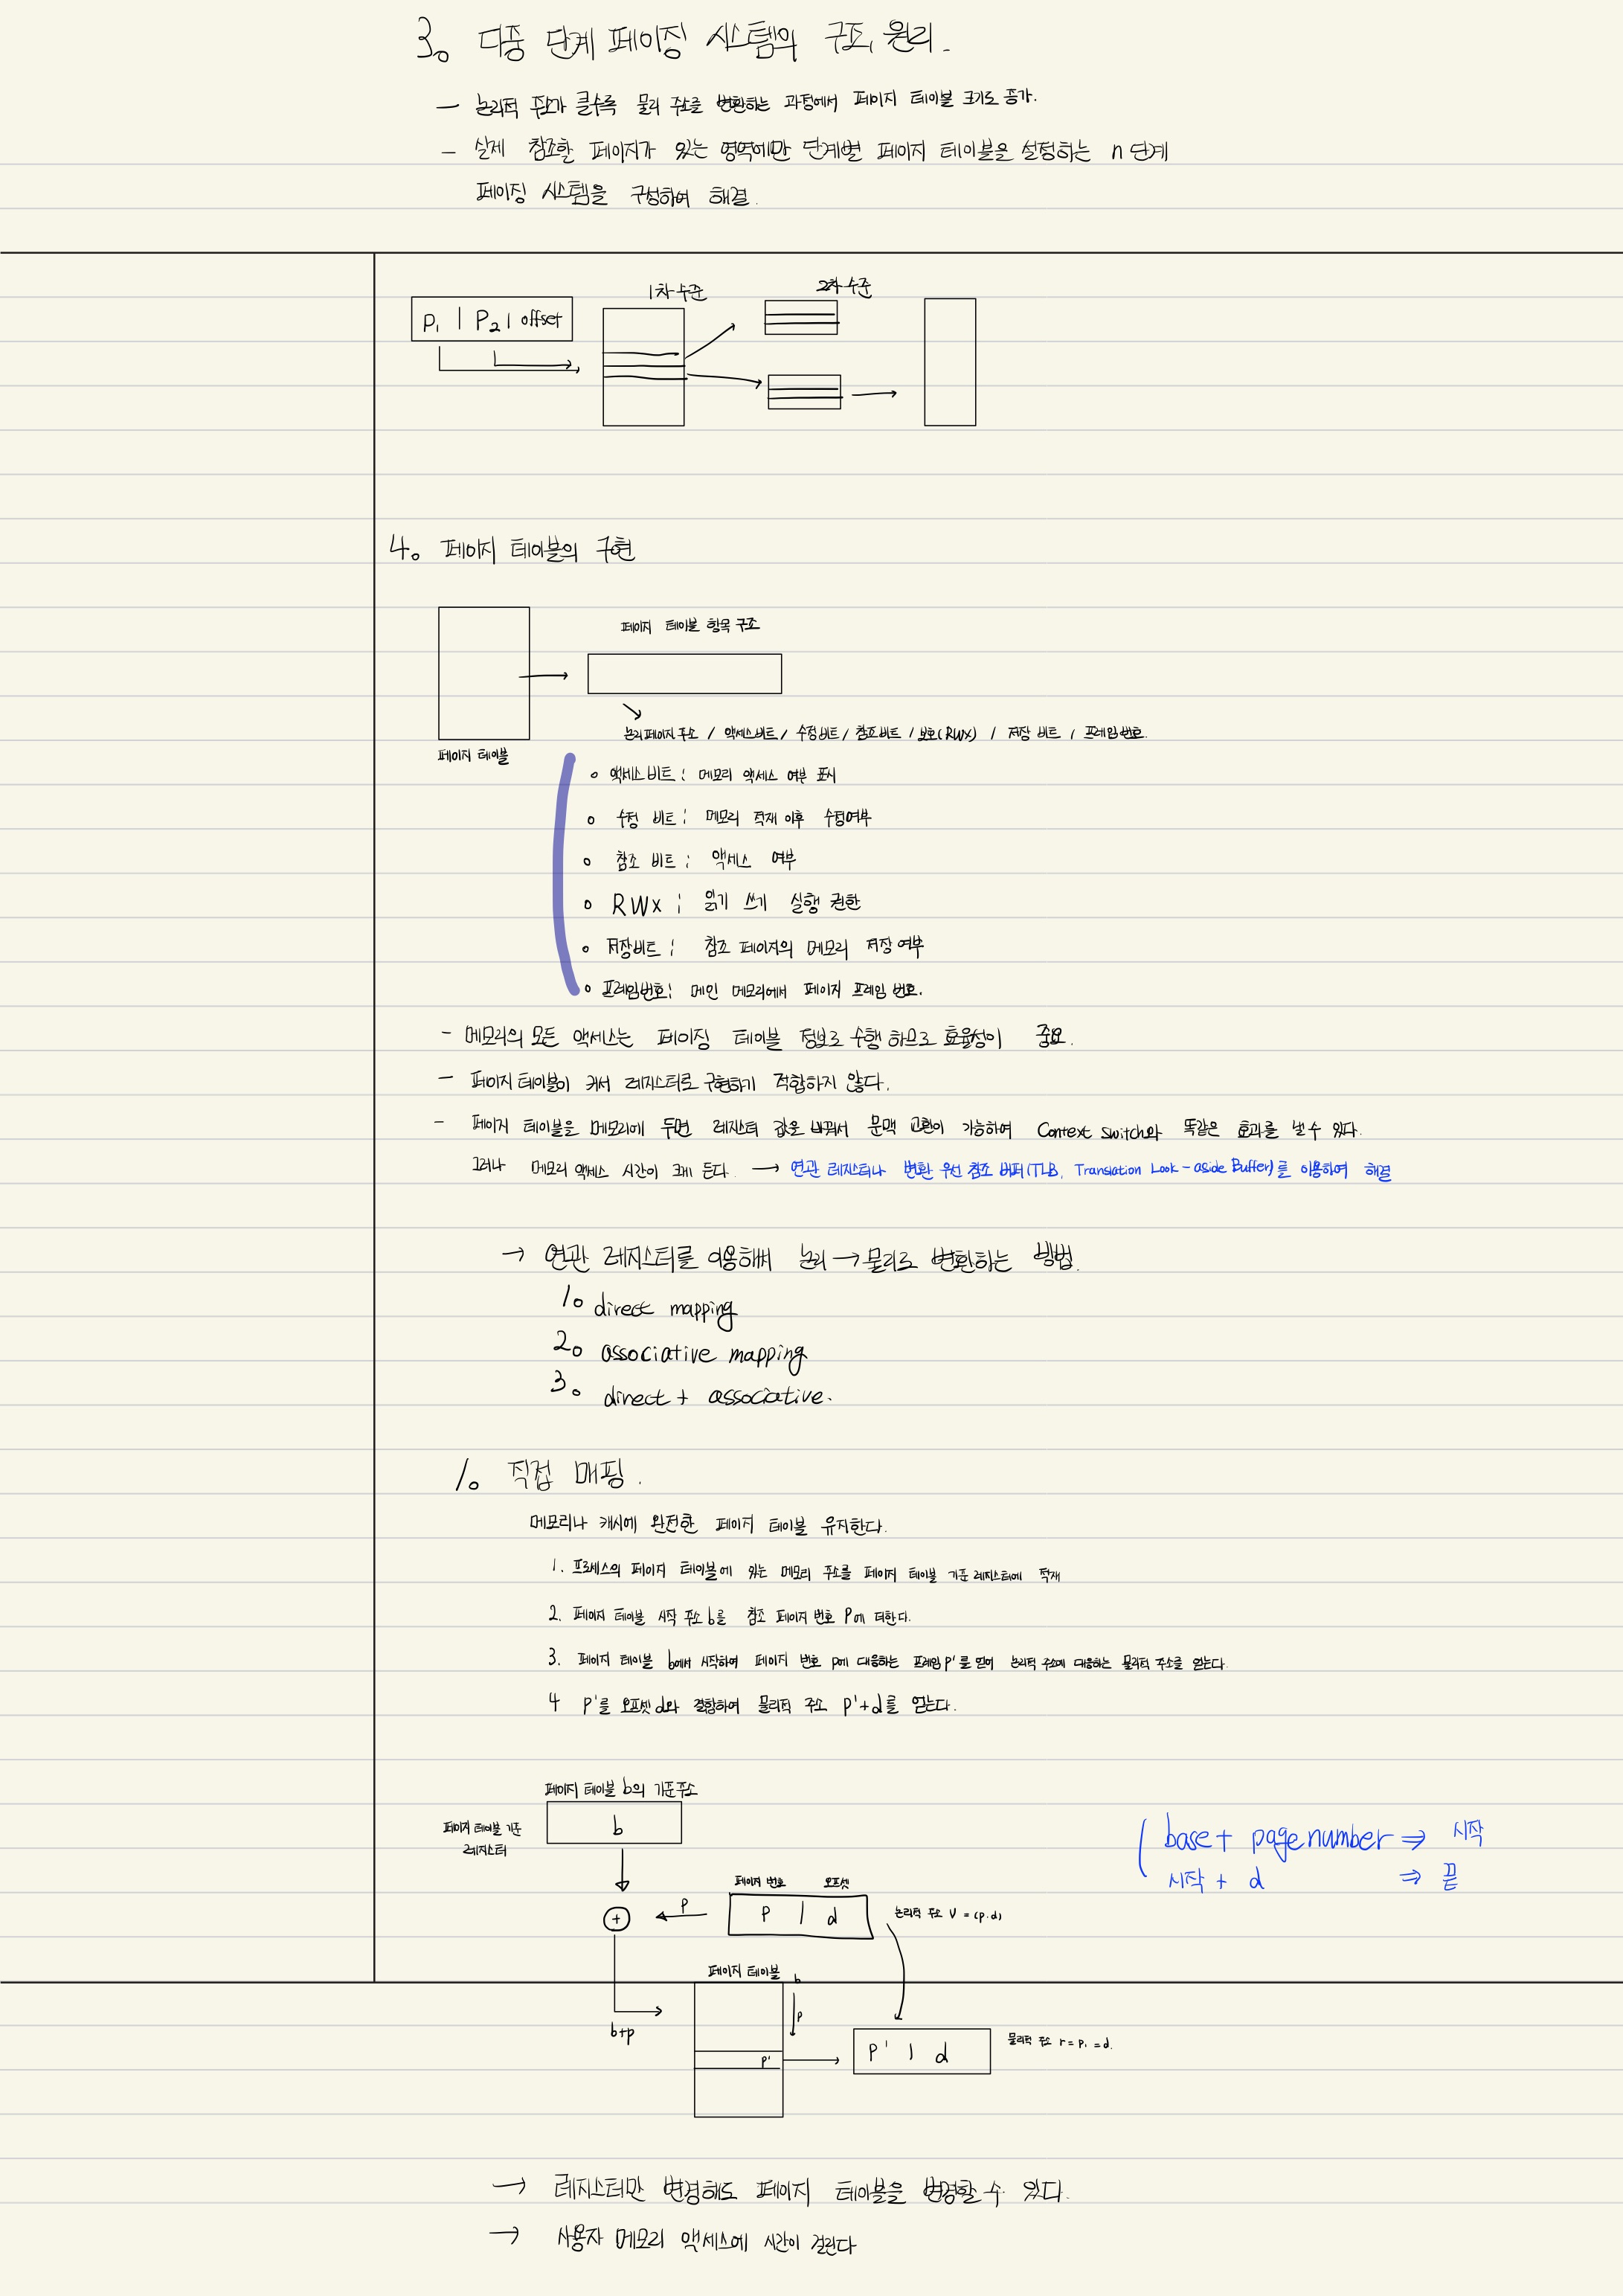 3. 다중 단계 페이징 시스템의 구조, 원리.
- 논리적 주소가 클수록 물리 주소로 변환하는 과정에서 페이지 테이블 크기도 증가.
- 실제 참조할 페이지가 있는 영역에만 단계별 페이지 테이블을 설정하는 n단계
페이징 시스템을 구성하여 해결.
1차 수준
2차 수준
P₁ | P₂ | offset
4. 페이지 테이블의 구현
페이지 테이블 항목 구조
논리 페이지 주소 / 액세스 비트 / 수정 비트 / 참조 비트 / 보호(RWX) / 저장 비트 / 프레임 번호.
페이지 테이블
액세스 비트 : 메모리 액세스 여부 표시
수정 비트 : 메모리 적재 이후 수정여부
참조 비트 : 액세스 여부
RWX : 읽기 쓰기 실행 권한
저장비트 : 참조 페이지의 메모리 저장 여부
프레임번호 : 메인 메모리에서 페이지 프레임 번호.
- 메모리의 모든 액세스는 페이징 테이블 정보로 수행 하므로 효율성이 중요.
- 페이지 테이블이 커서 레지스터로 구현하기 적합하지 않다.
- 페이지 테이블을 메모리에 두면 레지스터 값을 바꿔서 문맥 교환이 가능하여 Context switch와 똑같은 효과를 낼 수 있다.
그러나 메모리 액세스 시간이 크게 든다. → 연관 레지스터나 변환 우선 참조 버퍼(TLB, Translation Look-aside Buffer)를 이용하여 해결
→ 연관 레지스터를 이용해서 논리 → 물리로 변환하는 방법.
1. direct mapping
2. associative mapping
3. direct + associative.
1. 직접 매핑.
메모리나 캐시에 완전한 페이지 테이블 유지한다.
1. 프로세스의 페이지 테이블에 있는 메모리 주소를 페이지 테이블 기준 레지스터에 적재
2. 페이지 테이블 시작 주소 b를 참조 페이지 번호 P에 더한다.
3. 페이지 테이블 b에서 시작하여 페이지 번호 p에 대응하는 프레임 p'를 얻어 논리적 주소에 대응하는 물리적 주소를 얻는다.
4 P'를 오프셋 d와 결합하여 물리적 주소 P'+d를 얻는다.
페이지 테이블 b의 기준주소
페이지 테이블 기준
레지스터
b
base + page number ⇒ 시작
시작 + d ⇒ 끝
페이지 번호 오프셋
+
P
P | d
논리적 주소 V = (p.d)
페이지 테이블
b
P
b+p
P'
P' | d
물리적 주소 r = p₁ = d.
→ 레지스터만 변경해도 페이지 테이블을 변경할 수 있다.
→ 사용자 메모리 액세스에 시간이 걸린다